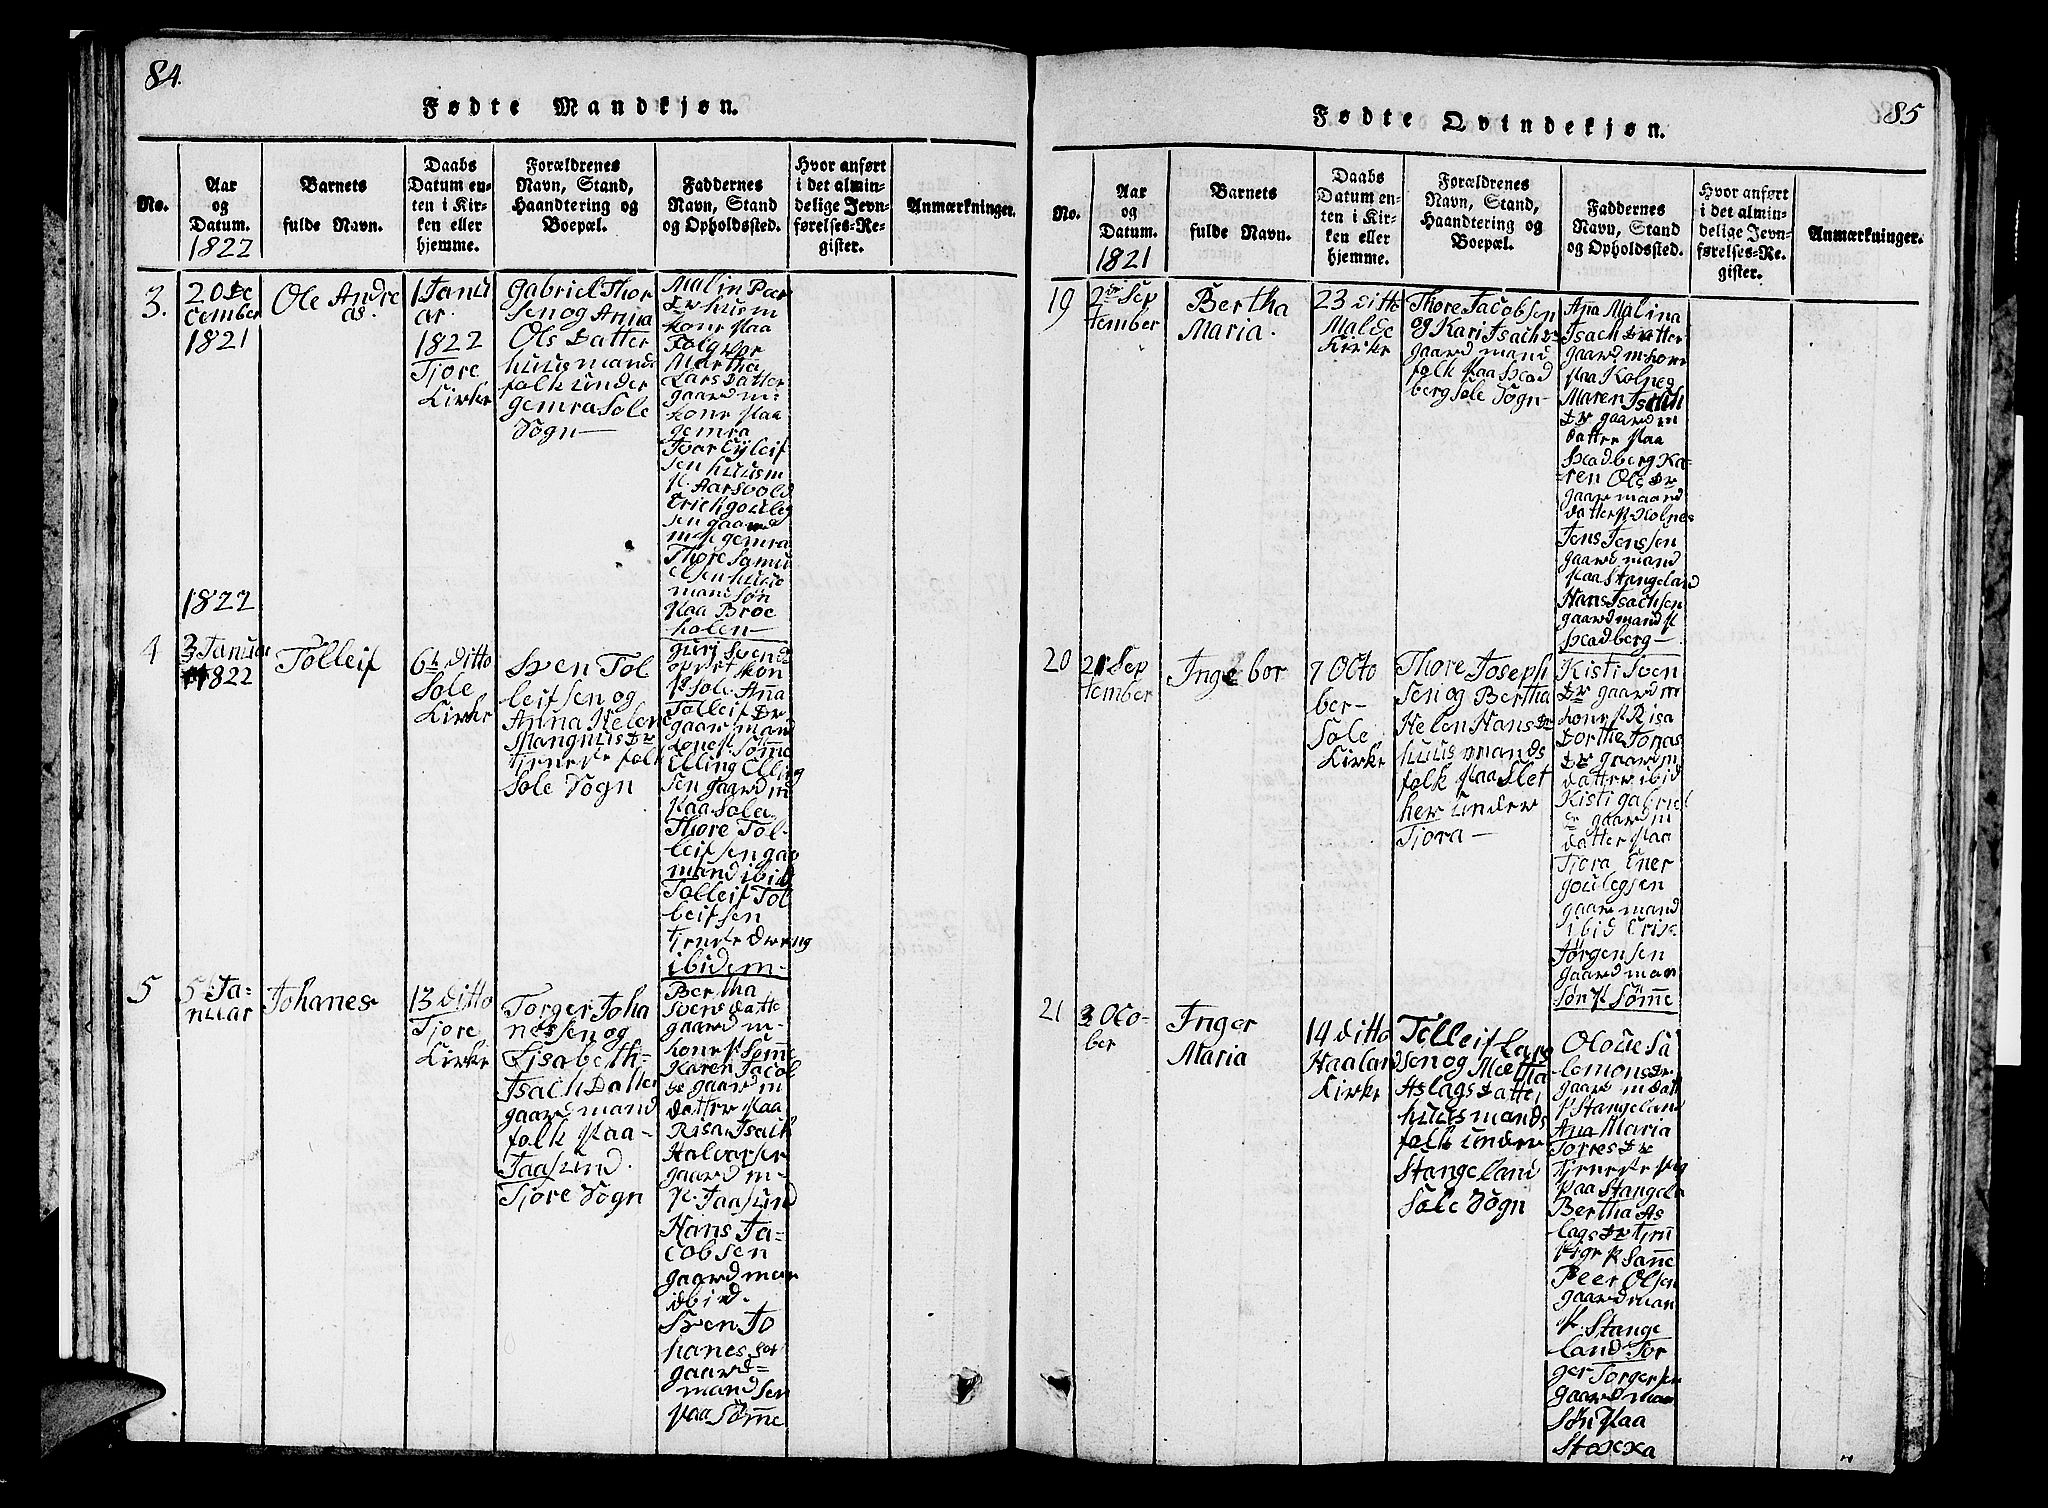 84.
Fødte Mandkjøn.
No.
Aar
og
Datum.
1822
Barnets
fulde Navn.
Daabs
Datum en-
ten i Kir-
ken eller
hjemme.
Forældrenes
Navn, Stand,
Haandtering og
Boepæl.
Faddernes
Navn, Stand
og Opholdssted.
Hvor anført
i det almin-
delige Jevn-
førelses-Re-
gister.
Anmærkninger.
3.
20 De
cember
1821
Ole Andre
as.
1 Janu
ar.
1822
Tjore
Kirke
Gabriel Thor
sen og Anna
Ols Datter
huusmands
folk under
gemra Sole
Sogn
Malin Par
Dr husm
kone paa
Martha
Lars Datter
gaard m:
kone paa
gemra
Ivar Eyleif
sen huusm
p. Aarsvold
Erick gouleg
sen gaard
m p gemra
Thore Samu
elsen huus
mand søn
paa Broe
holen
1822
4
3 Januar
1822
Tolleif
6te ditto
Sole
Kirke
Sven Tol
leifsen og
Anna Helene
Mangnus Dr
tjeneste folk
Sole Sogn
guri Svends
kon
p Sole Anna
Tolleifs Dr
gaard mand
kone p Sømme
Elling Elling
sen gaard m
paa Sole
Thore Tol-
leifsen gaar
mand ibid
Tolleif Tol
leifsen
tjeneste dreng
ibidem
5
5te Ja-
nuar
Johanes
13 ditto
Tjore
Kirke
Torger Joha
nessen og
Lisabeth
Isach Datter
gaard mand
folk paa
Jaasund.
Tjore Sogn
Bertha
Svens datte
gaard m-
kone p Sømme
Karen Jacob
Dr gaard m
datter paa
Risa Isack
Halvorsen
gaard m-
p. Jaasund
Hans Ja-
cobsen
gaard man
ibid.
Sven Jo
hanessen
gaard
mand sen
paa Sømme
85
Fødte Qvindekjøn.
No.
Aar
og
Datum.
1821
Barnets
fulde Navn.
Daabs
Datum en-
ten i Kir-
ken eller
hjemme.
Forældrenes
Navn, Stand,
Haandtering og
Boepæl.
Faddernes
Navn, Stand
og Opholdssted.
Hvor anført
i det almin-
delige Jevn-
førelses-Re-
gister.
Anmærkninger.
19
Sep
tember
Bertha
Maria.
23 ditto
Malde
Kirke
Thore Jacobsen
og Kari Isach Dr
gaard mand
folk paa Scad
berg Sole Sogn
Ana Malina
Isach Datter
gaard m kone
paa Kolnes
Maren Isach
Dr gaard m
datter paa
Scadberg Ka-
ren Ols Dr
gaar maand
datter p. Kolnes
Jens Jenssen
gaard mand
paa Stangeland
Hans Isachsen
gaard mand p
Scadberg
20
21 Sep
tember
Ingebor
7 Octo
ber
Sole
Kirke
Thore Joseph
sen og Bertha
Helen Hans Dr
huus mands
folk paa Slet
her under
Tjora
Kisti Sven
Dr gaard m
kone p Risa
Dorthe Jonas
Dr gaard m
datter ibid
Kisti gabriel
Dr gaard m
datter paa
Tjora Ener
goulegsen
gaar mand
ibid Erik
Jørgensen
gaard man
søn p Sømme
21
3 Oco-
ber
Inger
Maria
14 ditto
Haaland
Kirke
Tolleif Lars
sen og Mætha
Aslags Datte,
huus mands
folk under
Stangeland
Sole Sogn
Oloue Sa
lemons Dr
gaard m datt
p Stangeland
Ana Maria
Torres Dr
tjeneste pig
paa Stangela
Bertha As
lags Dr tjen
pige p Sømme
Peer Olsen
gaard man
p. Stange
land Tor
ger Torgersen
gaard man
søn paa
Stoxxa